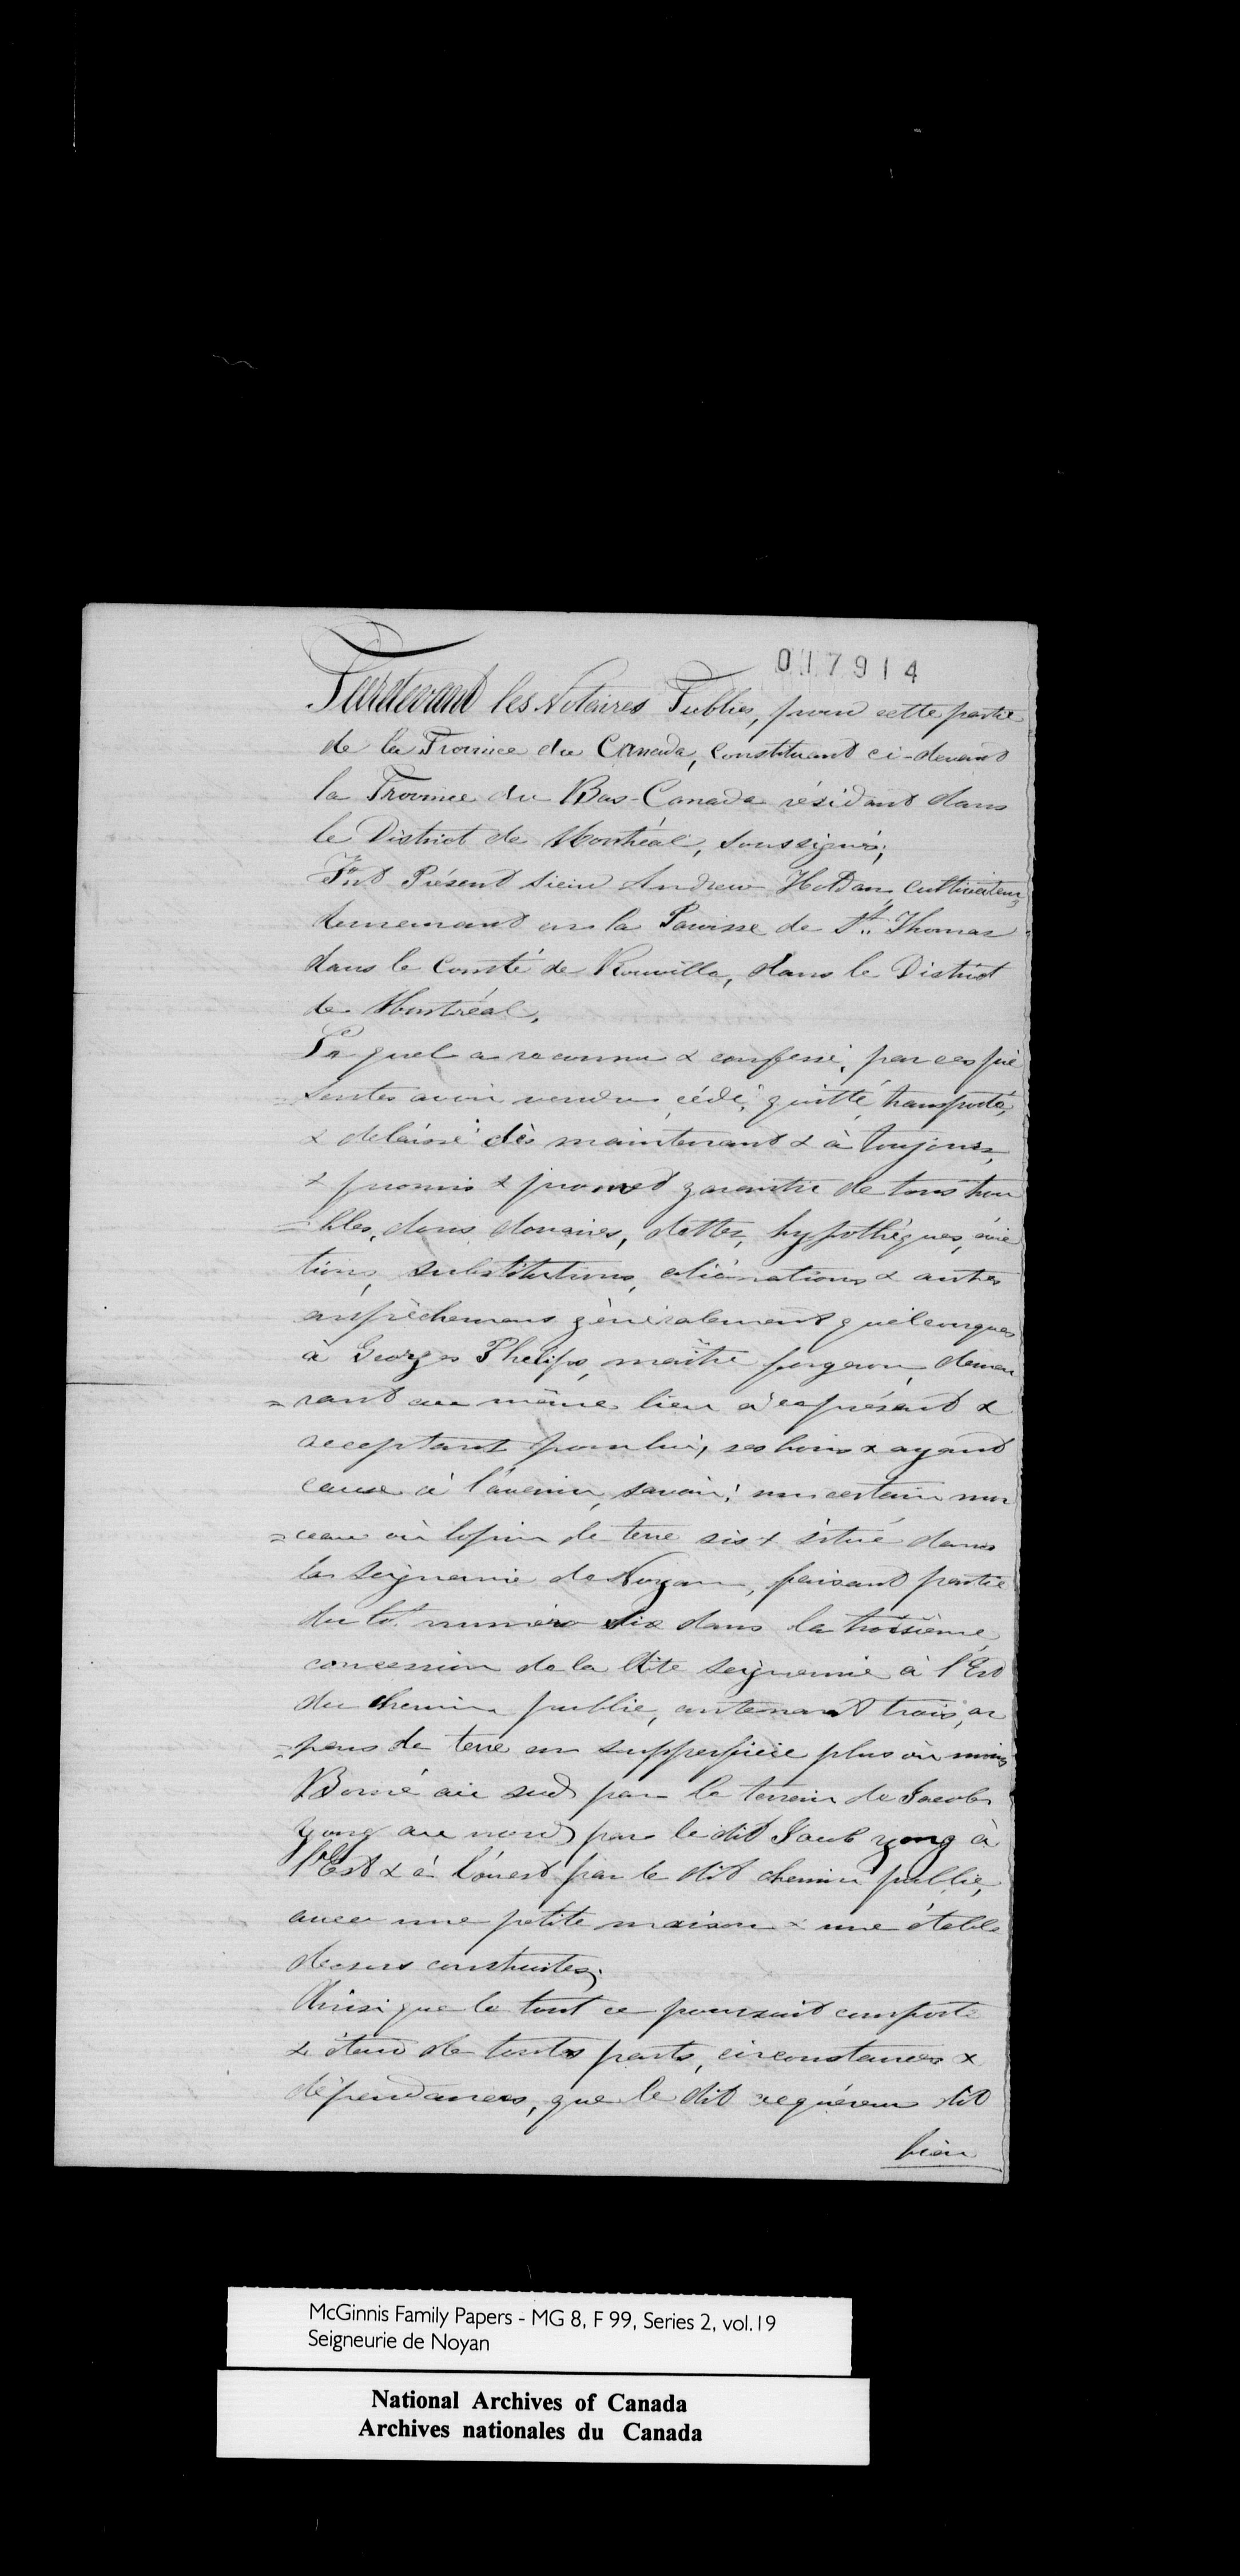 017914
Pardevant les Notaires Publics, pour cette partie
de la Province du Canada, constituant ci-devant
la Province du Bas-Canada résidant dans
le District de Montréal, soussignés;
Fut Présent Sieur Andrew Holdan, Cultivateur,
demeurant en la Paroisse de St. Thomas
dans le Comté de Rouville, dans le District
de Montréal,
Lequel a reconnu & confessé, par ces pré
=sentes avoir vendu cédé, quitté, transporté,
& delaissé dès maintenant & à toujours,
& promis & promet garantir de tous trou
=bles, dons, douaires, dettes, hypothèques, évic
tions, substitutions, aliénations & autres
empêchemens généralement quelconques
à Georges Phelips, maître forgeron, demeu
=rant au même lieu à ce présent &
acceptant pour lui, ses hoirs & ayant
cause à l'avenir, savoir; un certain mor
=ceau où lopin de terre sis & situé dans
la Seigneurie de Noyan, faisant partie
du lot numéro dix dans la troisième
concession de la dite Seigneurie à l'Est
du chemin public, contenant trois, ar
=pens de terre en supperficie plus où moins
Borné au sud par le terrain de Jacob
Yong au nord par le dit Jacob yong à
l'Est & à l'ouest par le dit chemin public,
avec une petite maison & une étable
dessus construites;
Ainsi que le tout ce poursuit comporte
& étend de toutes parts, circonstances &
dépendances, que le dit acquéreur dit
bien
McGinnis Family Papers - MG 8, F 99, Series 2, vol.19
Seigneurie de Noyan
National Archives of Canada
Archives nationales du Canada